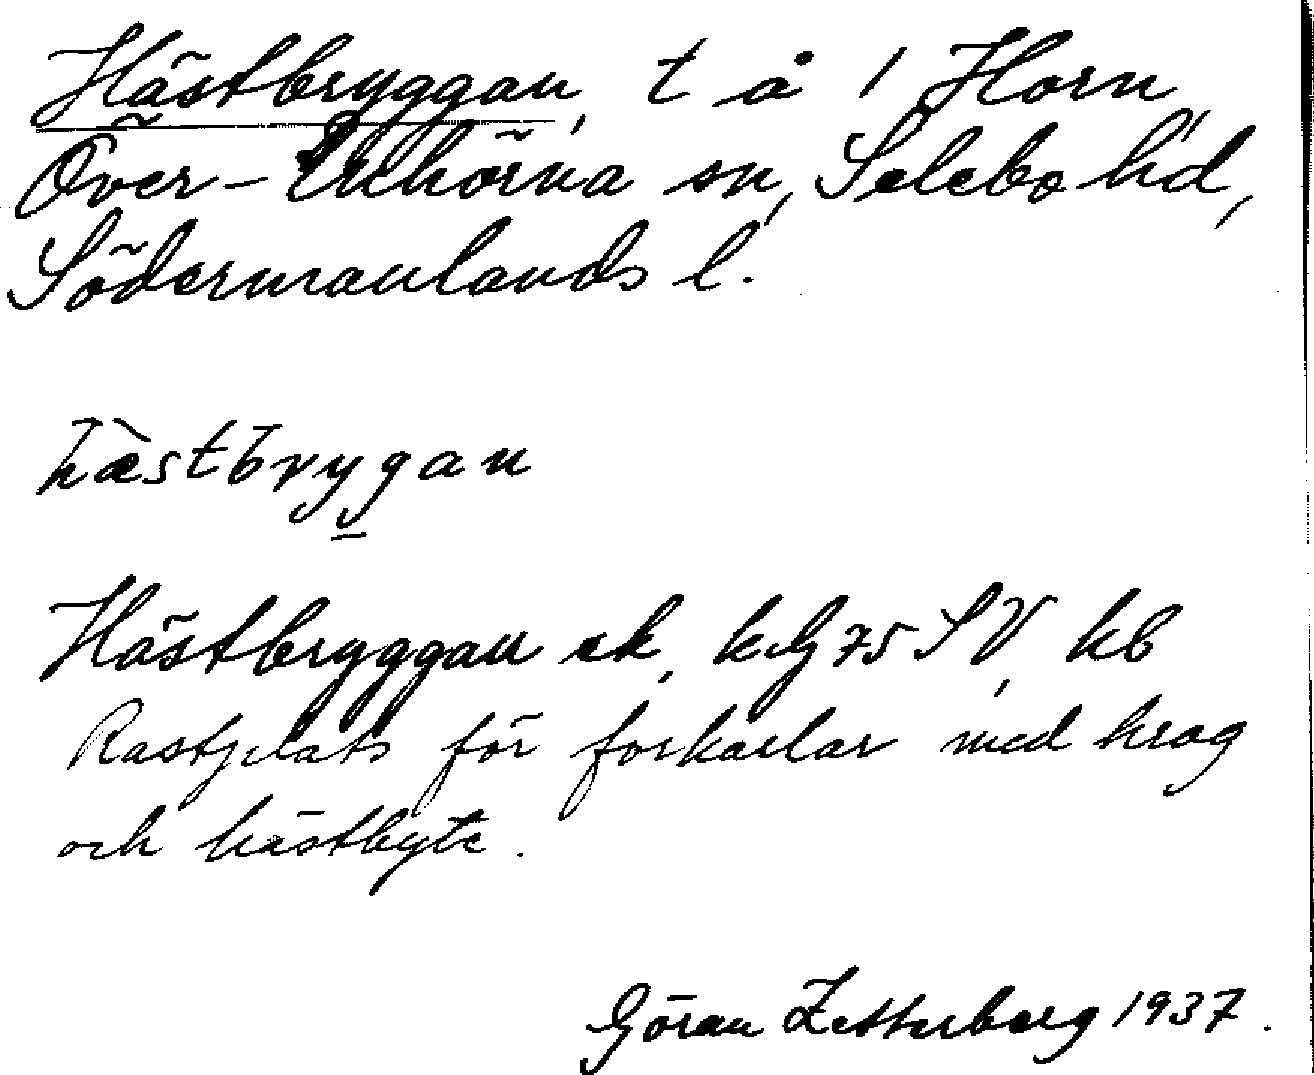 Hästbryggan, t å 1 Horn,
Över-Enhörna sn, Selebo hd,
Södermanlands l.
hæ̀stbrygan
Hästbryggan ek, kG 75 SV, kb
Rastplats för forkarlar med krog
och hästbyte.
Göran Zetterberg 1937.